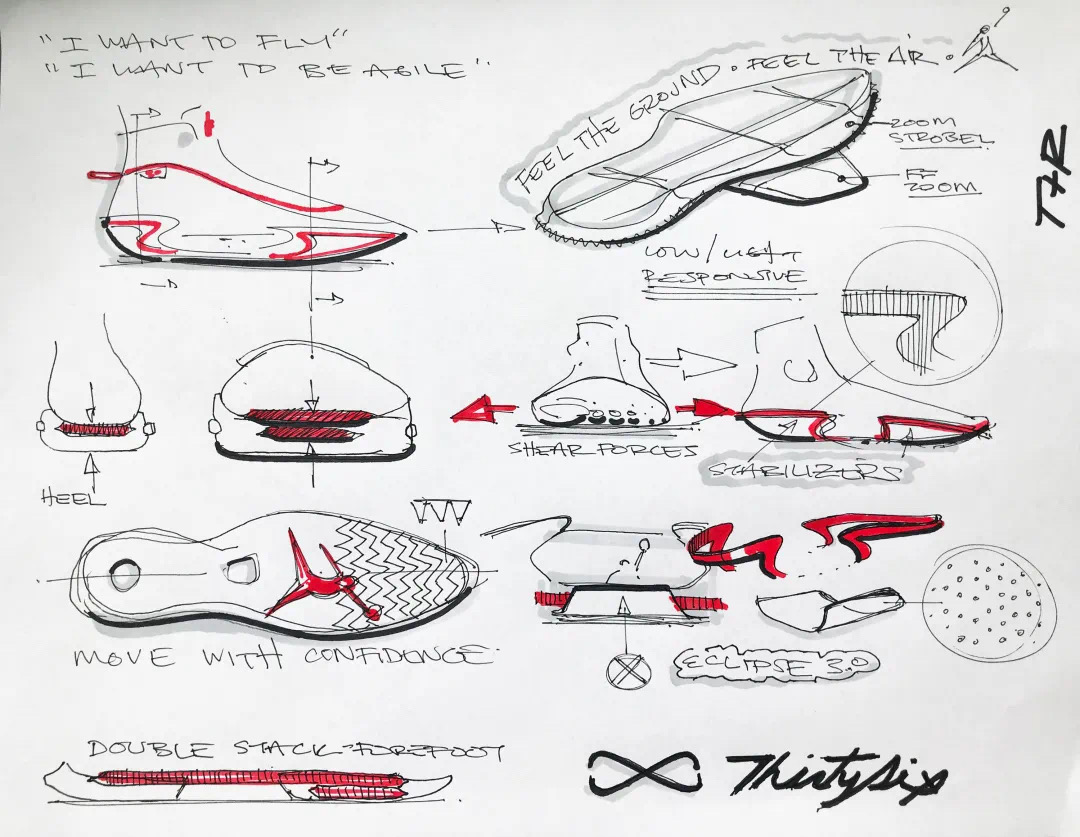 "I WANT TO FLY"
"I WANT TO BE AGILE"
FEEL THE GROUND • FEEL THE AIR •
ZOOM
STROBEL
FF
ZOOM
LOW/LIGHT
RESPONSIVE
HEEL
SHEAR FORCES
STABILIZERS
MOVE WITH CONFIDENCE
ECLIPSE 3.0
DOUBLE STACK-FOREFOOT
ThirtySix